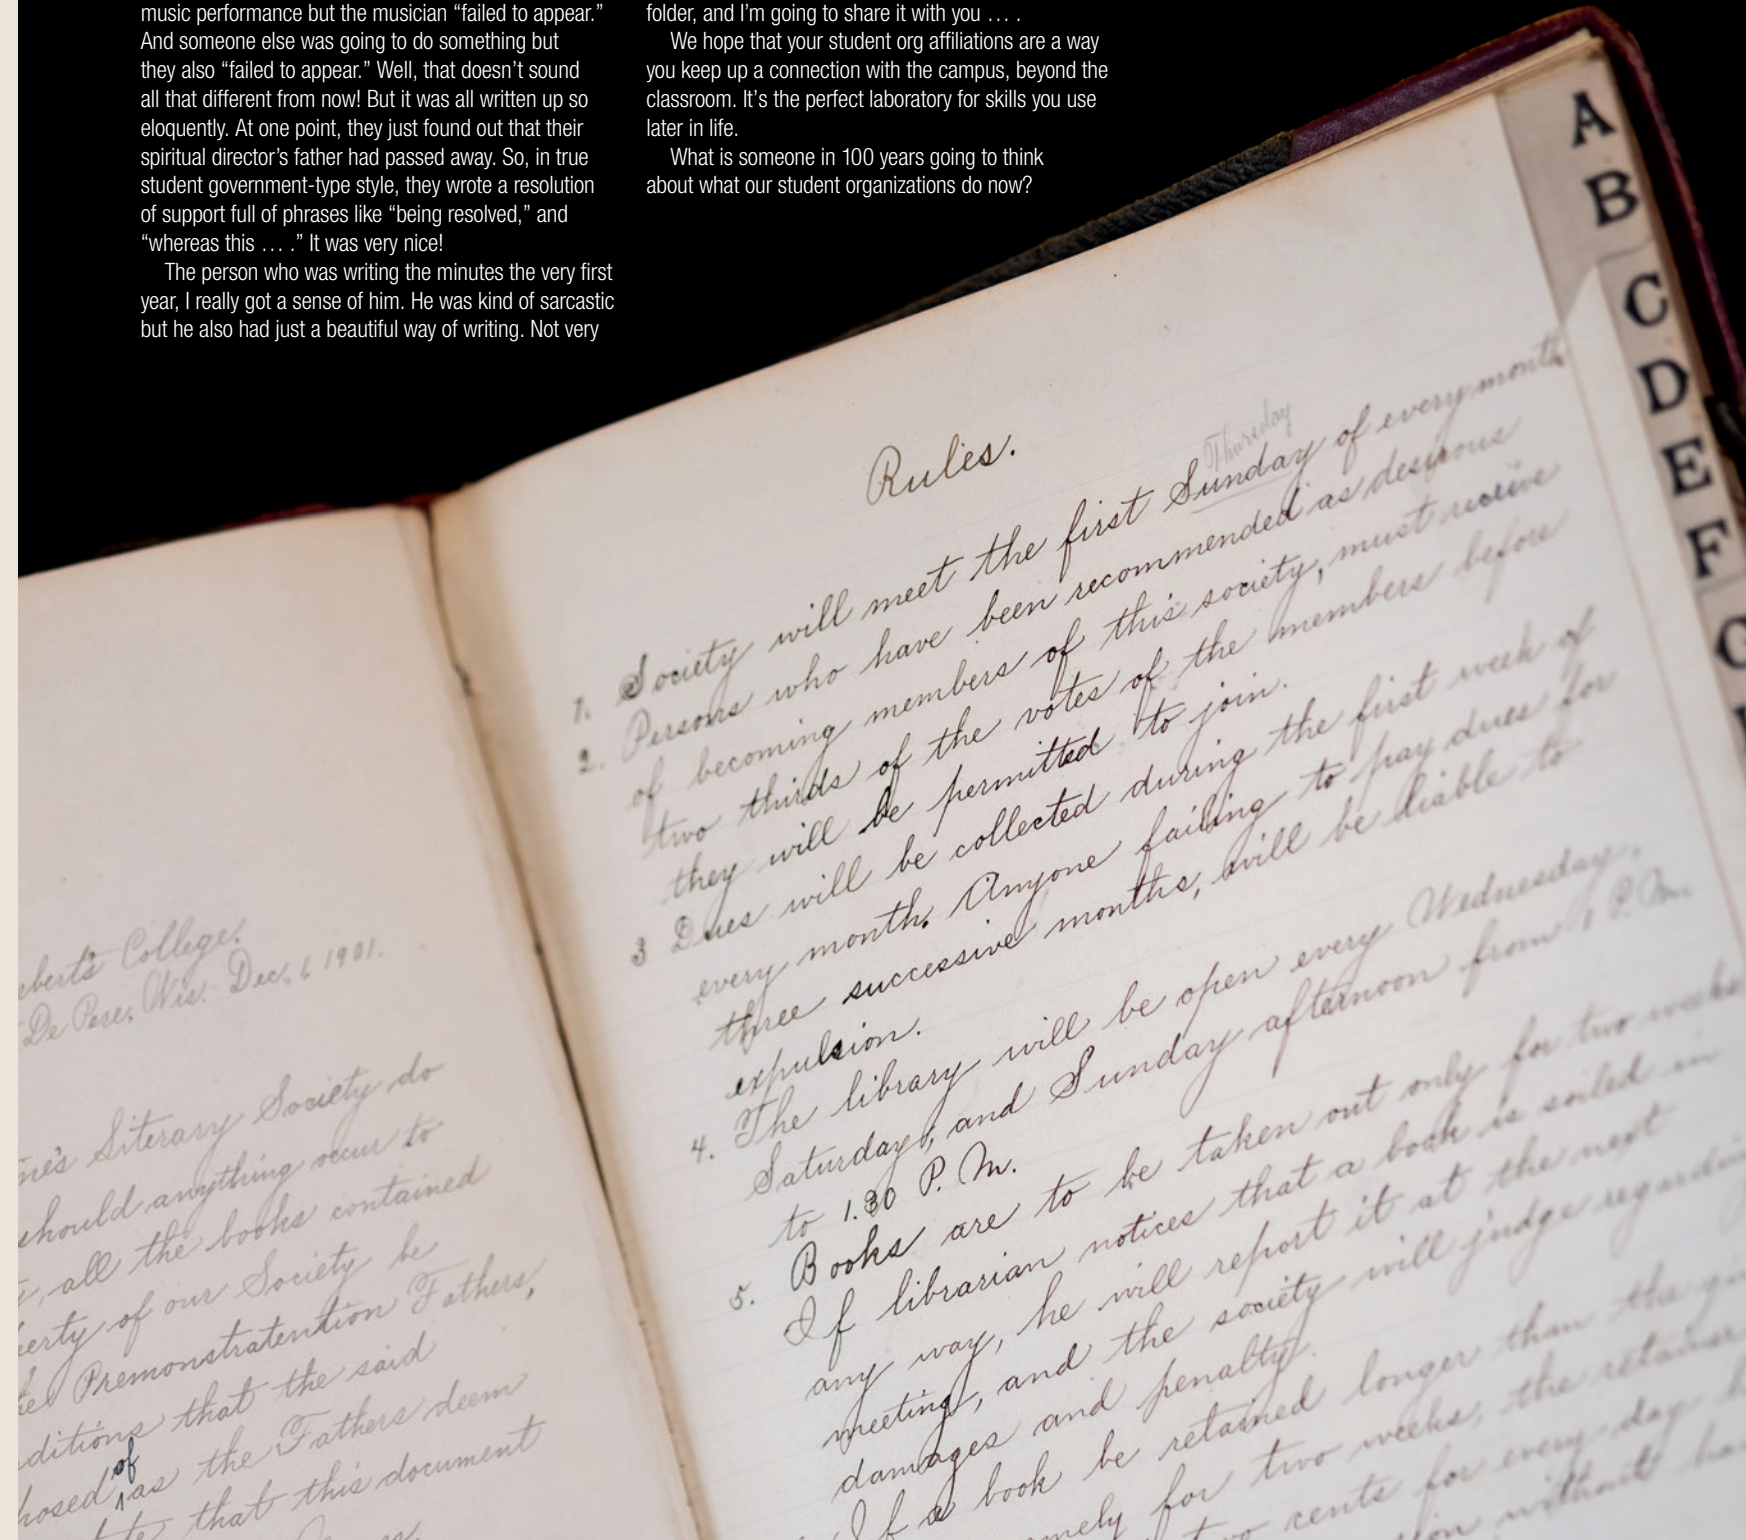 music performance but the musician “failed to appear.”
And someone else was going to do something but
they also “failed to appear.” Well, that doesn’t sound
all that different from now! But it was all written up so
eloquently. At one point, they just found out that their
spiritual director’s father had passed away. So, in true
student government-type style, they wrote a resolution
of support full of phrases like “being resolved,” and
“whereas this … .” It was very nice!
The person who was writing the minutes the very first
year, I really got a sense of him. He was kind of sarcastic
but he also had just a beautiful way of writing. Not very
folder, and I’m going to share it with you … .
We hope that your student org affiliations are a way
you keep up a connection with the campus, beyond the
classroom. It’s the perfect laboratory for skills you use
later in life.
What is someone in 100 years going to think
about what our student organizations do now?
bert's College.
De Pere, Wis. Dec. 6 1901.
ne's Literary Society do
should anything occur to
all the books contained
erty of our Society be
Premonstratention Fathers,
ditions that the said
of
hosed as the Fathers deem
that this document
Rules.
Thursday
1. Society will meet the first Sunday of every month
2. Persons who have been recommended as desirous
of becoming members of this society, must receive
two thirds of the votes of the members before
they will be permitted to join.
3 Dues will be collected during the first week of
every month. Anyone failing to pay dues for
three successive months, will be liable to
expulsion.
4. The library will be open every Wednesday,
Saturday, and Sunday afternoon from 1 P.M.
to 1.30 P.M.
5. Books are to be taken out only for two weeks
If librarian notices that a book is soiled in
any way, he will report it at the next
meeting, and the society will judge regarding
damages and penalty.
If a book be retained longer than the
for two weeks, the retainer
two cents for every day
without
A
B
C
D
E
F
G